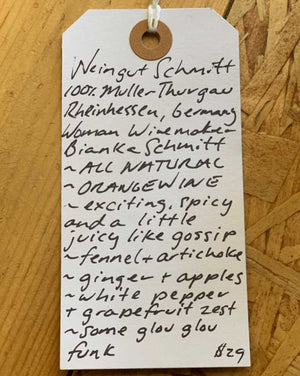 Weingut Schmitt
100% Muller-Thurgau
Rheinhessen, Germany
Woman Winemaker
Bianka Schmitt
~ ALL NATURAL
~ ORANGE WINE
~ exciting, spicy
and a little
juicy like gossip
~ fennel + artichoke
~ ginger + apples
~ white pepper
+ grapefruit zest
~ some glou glou
funk $29